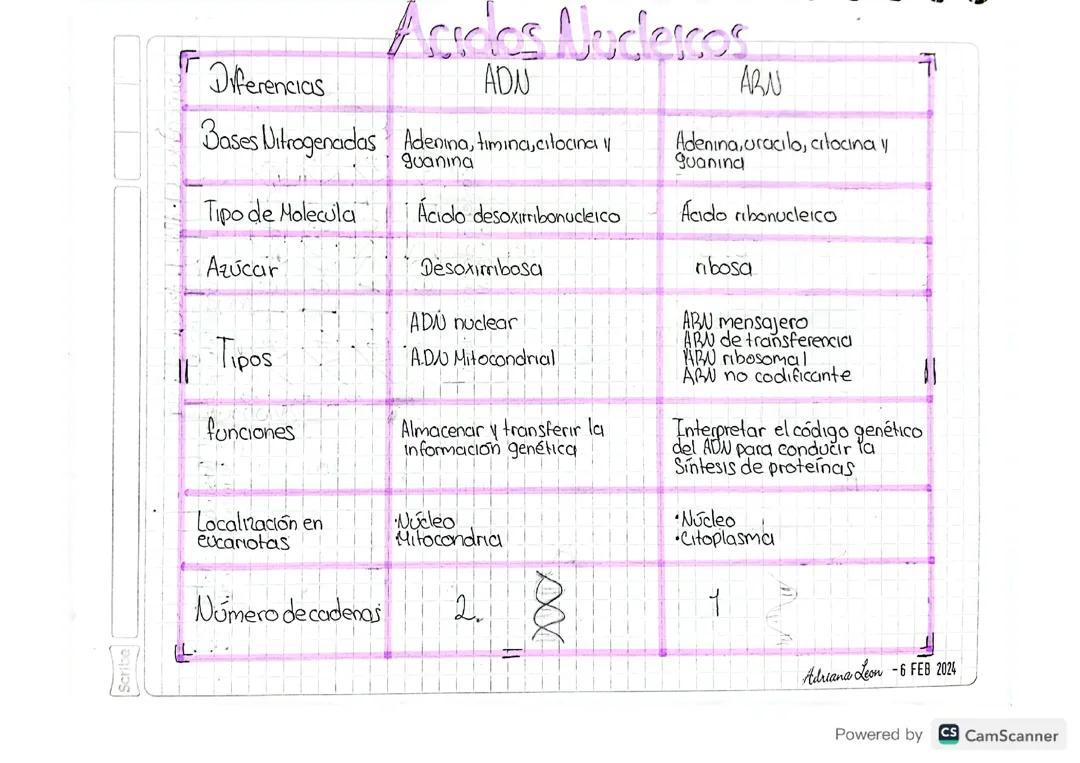 Ácidos Nucleicos
Diferencias
ADN
ARN
Bases Nitrogenadas
Adenina, timina, citocina y
guanina
Adenina, uracilo, citocina y
guanina
Tipo de Molecula
Ácido desoxirribonucleico
Ácido ribonucleico
Azúcar
Desoxirribosa
ribosa
Tipos
ADN nuclear
ADN Mitocondrial
ARN mensajero
ARN de transferencia
ARN ribosomal
ARN no codificante
funciones
Almacenar y transferir la
información genética
Interpretar el código genético
del ADN para conducir la
Síntesis de proteínas
Localización en
eucariotas
•Núcleo
Mitocondria
•Núcleo
•Citoplasma
Número de cadenas
2.
1
Adriana Leon - 6 FEB 2024
Scribe
Powered by CS CamScanner